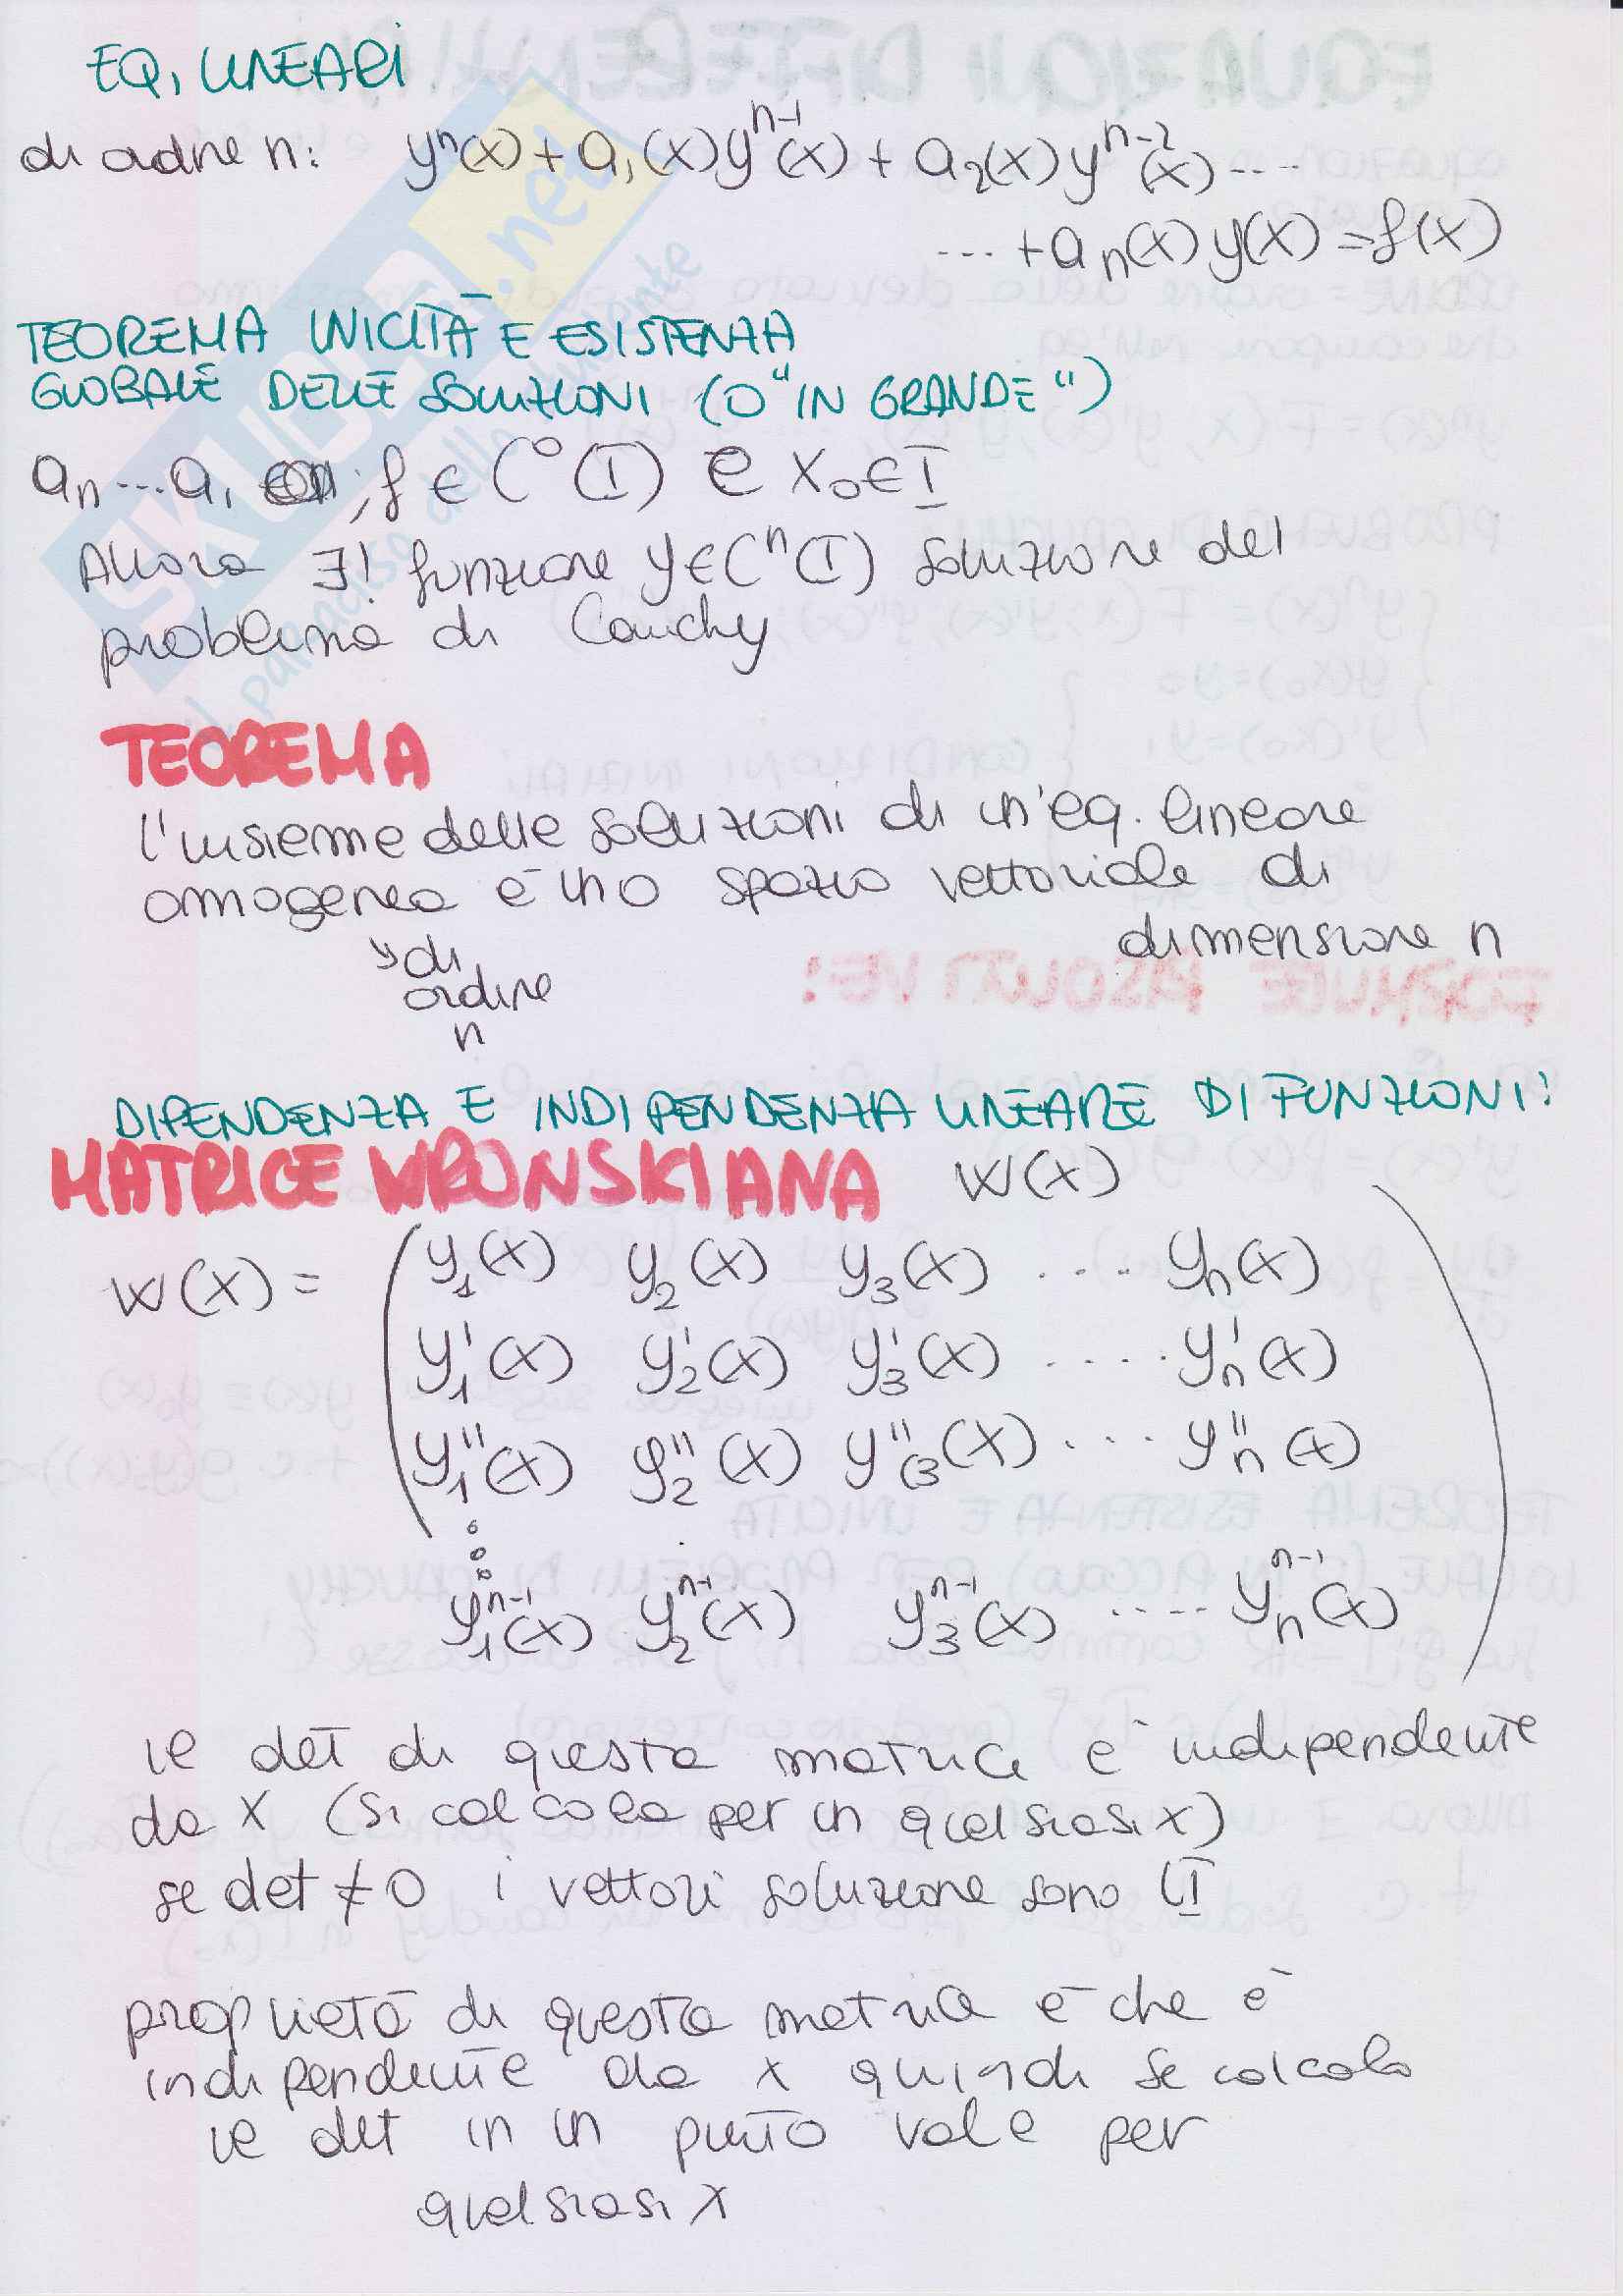 EQ. LINEARI
di ordine n: yⁿ(x) + a₁(x) yⁿ⁻¹(x) + a₂(x) yⁿ⁻²(x) ....
... + aₙ(x) y(x) = f(x)
TEOREMA UNICITÀ E ESISTENZA
GLOBALE DELLE SOLUZIONI (O "IN GRANDE")
aₙ ... a₁ ; f ∈ C⁰(I) e x₀ ∈ I
Allora ∃! funzione y ∈ Cⁿ(I) soluzione del
problema di Cauchy
TEOREMA
l'insieme delle soluzioni di un'eq. lineare
omogenea è uno spazio vettoriale di
dimensione n
↘ di
ordine
n
DIPENDENZA E INDIPENDENZA LINEARE DI FUNZIONI:
MATRICE WRONSKIANA W(x)
W(x) = ( y₁(x) y₂(x) y₃(x) .... yₙ(x)
y₁'(x) y₂'(x) y₃'(x) ..... yₙ'(x)
y₁''(x) y₂''(x) y₃''(x) .... yₙ''(x)
y₁ⁿ⁻¹(x) y₂ⁿ⁻¹(x) y₃ⁿ⁻¹(x) ..... yₙⁿ⁻¹(x) )
il det di questa matrice è indipendente
da x (si calcola per un qualsiasi x)
se det ≠ 0 i vettori soluzione sono LI
proprietà di questa matrice è che è
indipendente da x quindi se calcolo
il det in un punto vale per
qualsiasi x
SKUOLA.net
il paradiso dello studente